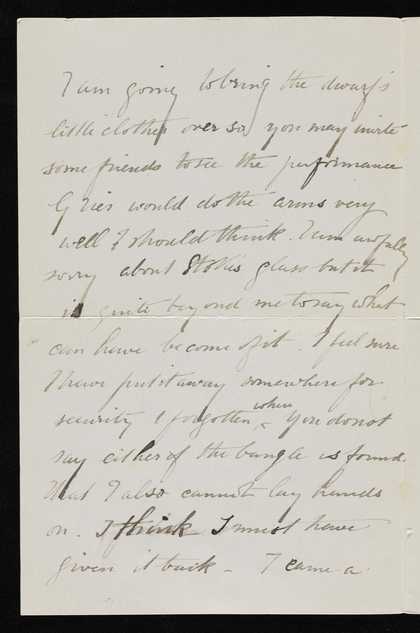 I am going to bring the dwarf's
little clothes over so you may invite
some friends to see the performance
would do the arms very
well I should think. I am awfully
sorry about glass but it
is quite beyond me to say what
can have become of it. I feel sure
I have put it away somewhere for
security & forgotten ^ where you do not
say either of the bangle is found.
that I also cannot lay hands
on. I think I must have
given it back - I came a